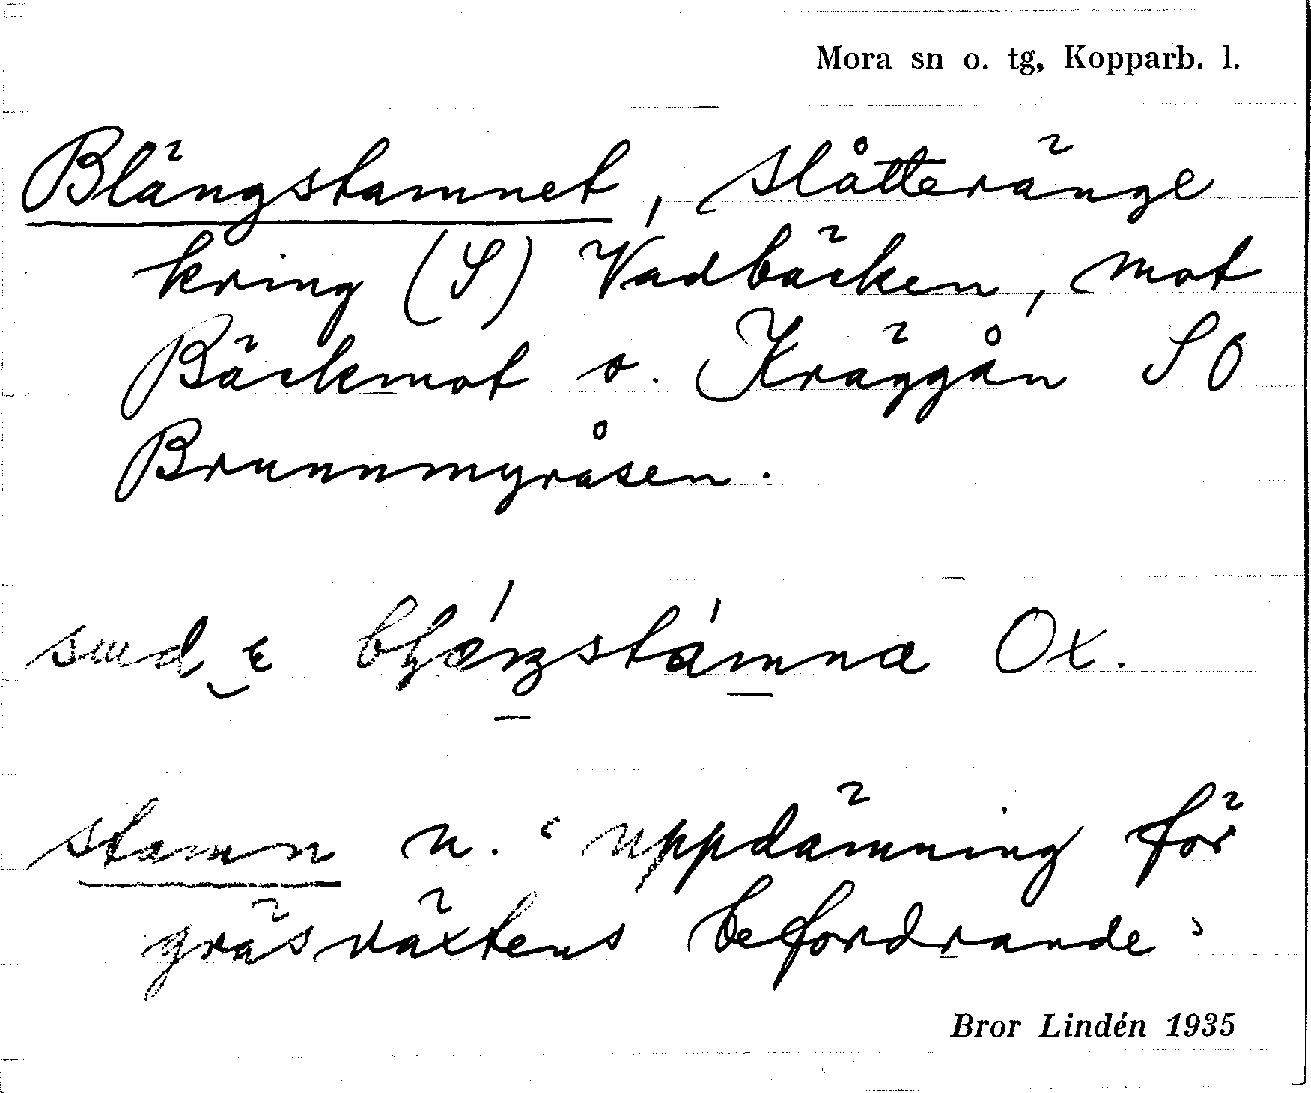 Mora sn o. tg, Kopparb. l.
Blängstamnet, slåtteränge
kring (S) Vadbäcken, mot
Bäckmot o. Kräggån SO
Brunnmyråsen.
Ox.
stamn n. ‘uppdämning för
gräsväxtens befordrande’
Bror Lindén 1935